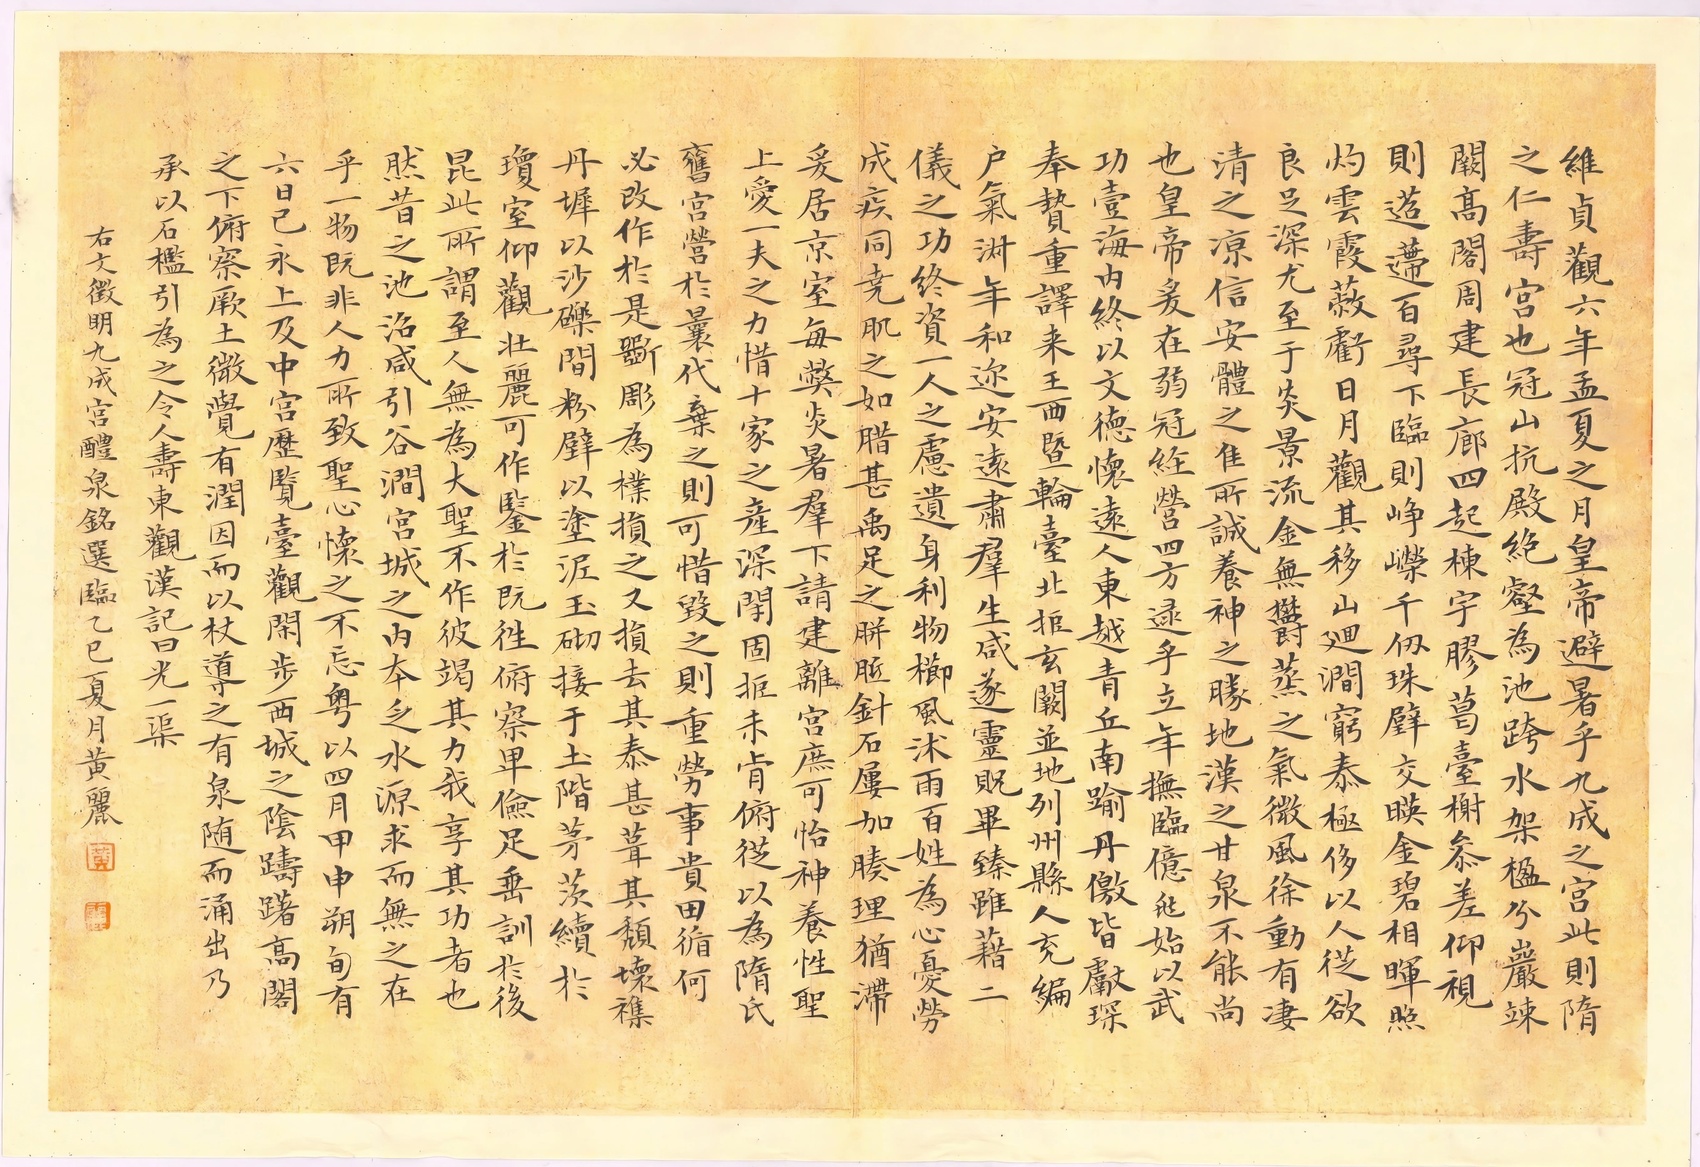 維貞觀六年孟夏之月皇帝避暑乎九成之宮此則隋
之仁壽宮也冠山抗殿絶壑為池跨水架楹分巖竦
闕高閣周建長廊四起棟宇膠葛臺榭叅差仰視
則迢遰百尋下臨則崢嶸千仞珠璧交暎金碧相暉照
灼雲霞蔽虧日月觀其移山廻澗窮泰極侈以人從欲
良足深尤至于炎景流金無欝蒸之氣微風徐動有凄
清之凉信安體之佳所誠養神之勝地漢之甘泉不能尚
也皇帝爰在弱冠經營四方逮乎立年撫臨億兆始以武
功壹海内終以文德懷遠人東越青丘南踰丹徼皆獻琛
奉贄重譯来王西暨輪臺北拒玄闕並地列州縣人充編
户氣淑年和迩安遠肅羣生咸遂靈貺畢臻雖藉二
儀之功終資一人之慮遺身利物櫛風沐雨百姓為心憂勞
成疾同堯肌之如腊甚禹足之胼胝針石屢加腠理猶滯
爰居京室每弊炎暑羣下請建離宮庶可怡神養性聖
上愛一夫之力惜十家之産深閉固拒未肯俯從以為隋氏
舊宮營於曩代棄之則可惜毀之則重勞事貴因循何
必改作於是斲彫為樸損之又損去其泰甚葺其頹壞雜
丹墀以沙礫間粉壁以塗泥玉砌接于土階茅茨續於
瓊室仰觀壮麗可作鑒於既往俯察卑儉足垂訓於後
昆此所謂至人無為大聖不作彼竭其力我享其功者也
然昔之池沼咸引谷澗宮城之内本乏水源求而無之在
乎一物既非人力所致聖心懷之不忘粤以四月甲申朔旬有
六日己亥上及中宮歷覽臺觀閑步西城之陰躊躇高閣
之下俯察厥土微覺有潤因而以杖導之有泉隨而涌出乃
承以石檻引為之令人壽東觀漢記曰光一渠
右文徵明九成宮醴泉銘選臨乙巳夏月黄麗